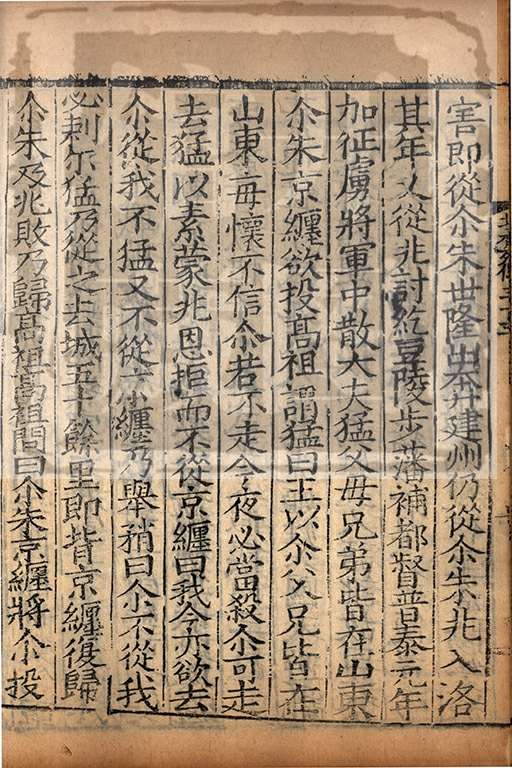 害即從尒朱世隆出奔建州仍從尒朱兆入洛
其年又從兆討紇豆陵步藩補都督普泰元年
加征虜將軍中散大夫猛父母兄弟皆在山東
尒朱京纏欲投髙祖謂猛曰王以尒父兄皆在
山東毎懷不信尒若不走今夜必當殺尒可走
去猛以素蒙兆恩拒而不從京纏曰我今亦欲去
尒從我不猛又不從京纏乃舉矟曰尒不從我
必刺尒猛乃從之去城五十餘里即背京纏復歸
尒朱及兆敗乃歸髙祖髙祖問曰尒朱京纏將尒投